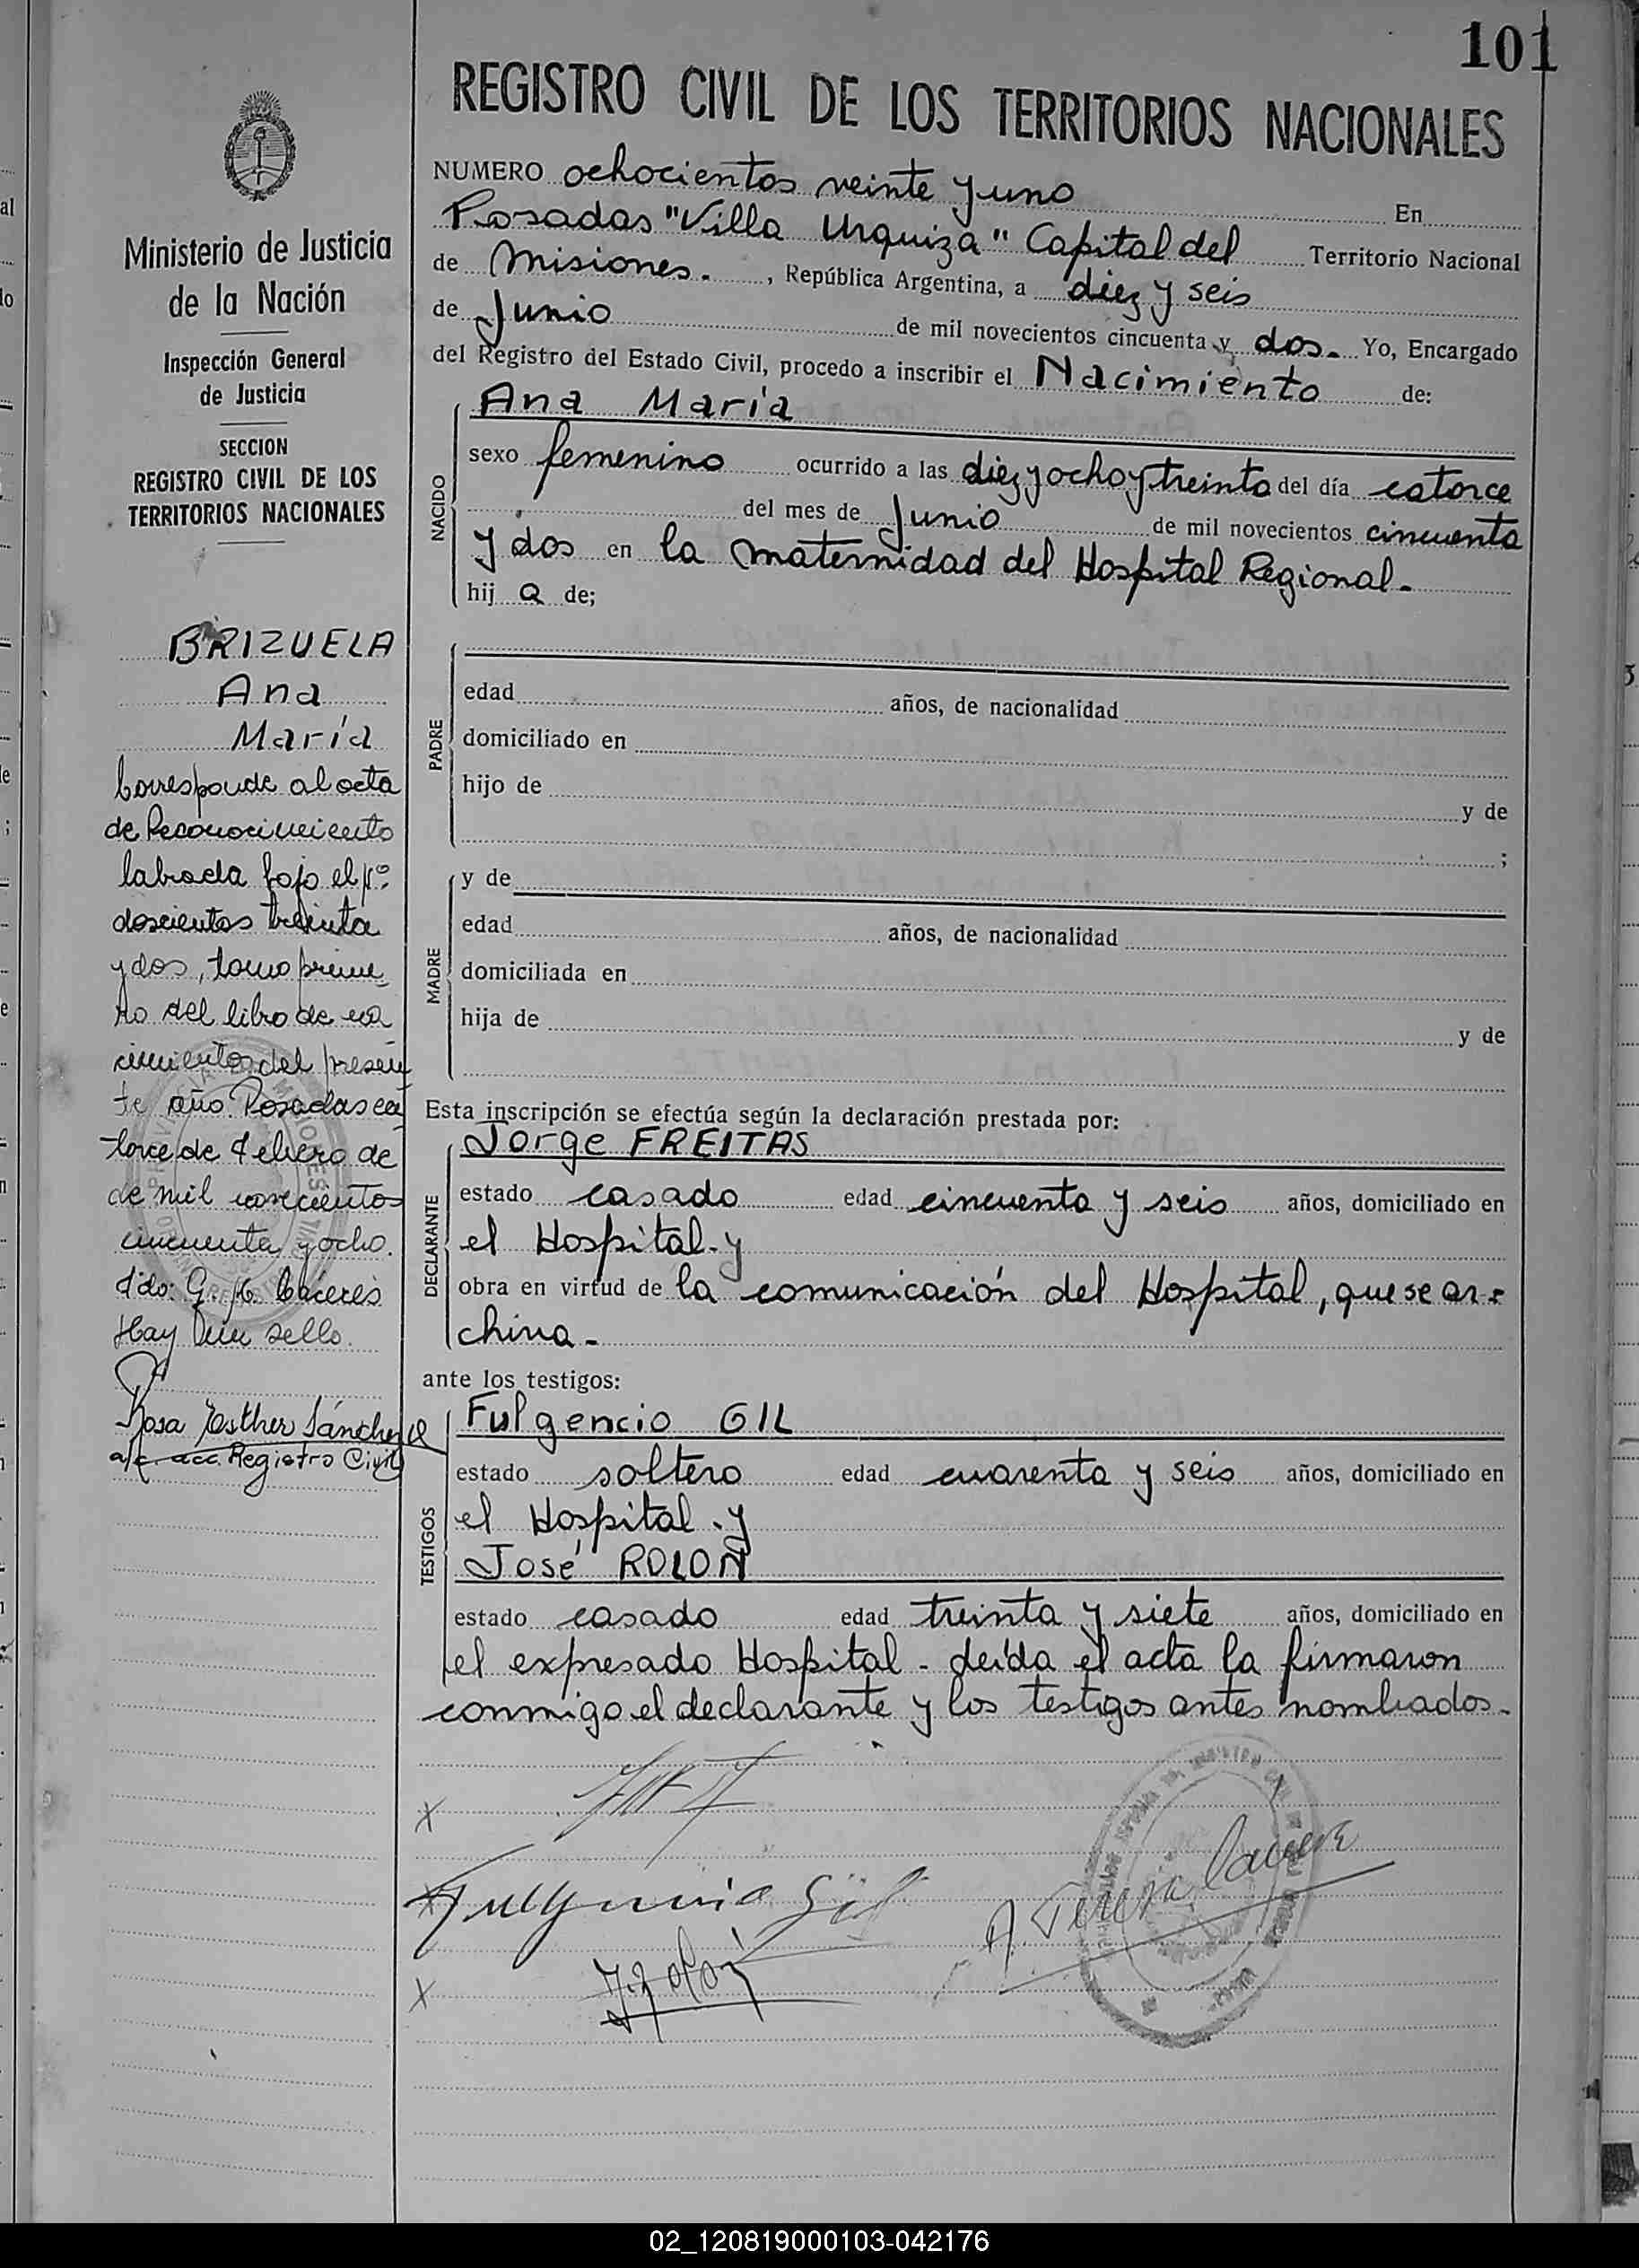 101
REGISTRO CIVIL DE LOS TERRITORIOS NACIONALES
NUMERO ochocientos veinte y uno En
Posadas "Villa Urquiza" Capital del Territorio Nacional
de Misiones. , República Argentina, a diez y seis
de Junio de mil novecientos cincuenta y dos. Yo, Encargado
del Registro del Estado Civil, procedo a inscribir el Nacimiento de:
NACIDO
Ana María
sexo femenino ocurrido a las diez y ocho y treinta del día catorce
del mes de Junio de mil novecientos cincuenta
y dos en la maternidad del Hospital Regional.
hij a de;
PADRE
edad años, de nacionalidad
domiciliado en
hijo de y de
;
MADRE
y de
edad años, de nacionalidad
domiciliada en
hija de y de
Esta inscripción se efectúa según la declaración prestada por:
DECLARANTE
Jorge FREITAS
estado casado edad cincuenta y seis años, domiciliado en
el Hospital.y
obra en virtud de la comunicación del Hospital, que se ar-
chiva-
ante los testigos:
TESTIGOS
Fulgencio GIL
estado soltero edad cuarenta y seis años, domiciliado en
el Hospital.y
José ROLON
estado casado edad treinta y siete años, domiciliado en
el expresado Hospital - Leída el acta la firmaron
conmigo el declarante y los testigos antes nombrados.
x
x Fulgencio Gil
x
Ministerio de Justicia
de la Nación
Inspección General
de Justicia
SECCION
REGISTRO CIVIL DE LOS
TERRITORIOS NACIONALES
BRIZUELA
Ana
María
Corresponde al acta
de Reconocimiento
labrada bajo el Nº
doscientos treinta
y dos, tomo prime
ro del libro de na
cimientos del presen
te año. Posadas ca
torce de Febrero de
de mil novecientos
cincuenta y ocho.
Fdo: G. K. Cáceres
Hay un sello.
Rosa Esther Sánchez
a/c. acc. Registro Civil
02_120819000103-042176